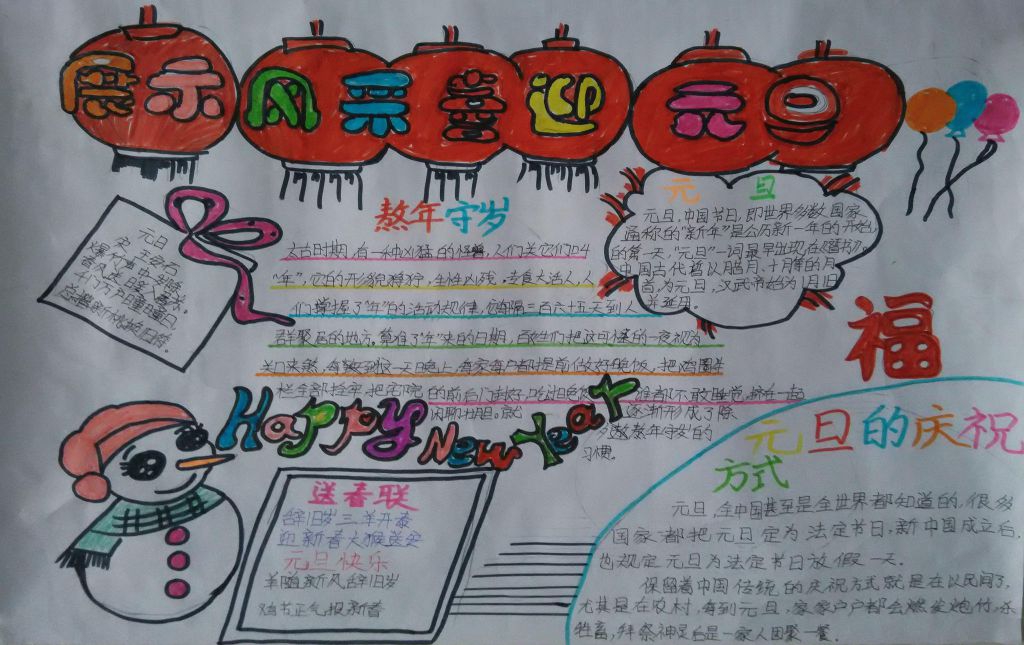 展示风采喜迎元旦
元旦
元旦,中国节日,即世界多数国家
通称的"新年"是公历新一年的开始
的第一天,"元旦"一词最早出现在《晋书》
中国古代曾以腊月、十月等的月
首为元旦,汉武帝始为1月1日
并延用.
元旦
宋 王安石
爆竹声中一岁除
春风送暖入屠苏.
千门万户曈曈日.
总把新桃换旧符.
熬年守岁
太古时期,有一种凶猛的怪兽,人们关它们叫
"年",它的形貌狰狞,生性凶残,专食大活人,人
们掌握了"年"的活动规律,它每隔三百六十五天到人
群聚居的地方.算准了"年"来的日期,百姓们把这可怕的一夜视为
关口来熬,每到这一天晚上,每家每户都提前做好晚饭,把鸡圈牛
栏全部拴牢,把宅院的前后门封好,吃 谁都不敢睡觉,挤在一起
闲聊壮胆.就 逐渐形成了除
夕 熬年守岁的
习惯.
福
Happy New Year
送春联
辞旧岁三羊开泰
迎新春大猴送安
元旦快乐
羊随新风辞旧岁
鸡书正气报新春
元旦的庆祝
方式
元旦,全中国甚至是全世界都知道的,很多
国家都把元旦定为法定节日,新中国成立后,
也规定元旦为法定节日放假一天.
保留着中国传统的庆祝方式就是在以民间了,
尤其是在农村,每到元旦,家家户户都会燃发炮竹,杀
牲畜,拜祭神灵后是一家人团聚一餐.